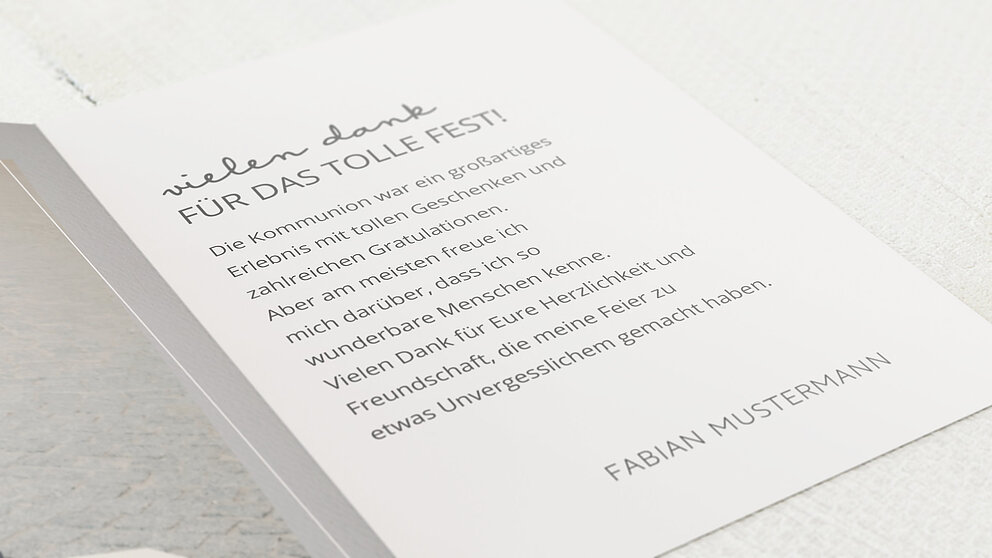 vielen dank
FÜR DAS TOLLE FEST!
Die Kommunion war ein großartiges
Erlebnis mit tollen Geschenken und
zahlreichen Gratulationen.
Aber am meisten freue ich
mich darüber, dass ich so
wunderbare Menschen kenne.
Vielen Dank für Eure Herzlichkeit und
Freundschaft, die meine Feier zu
etwas Unvergesslichem gemacht haben.
FABIAN MUSTERMANN